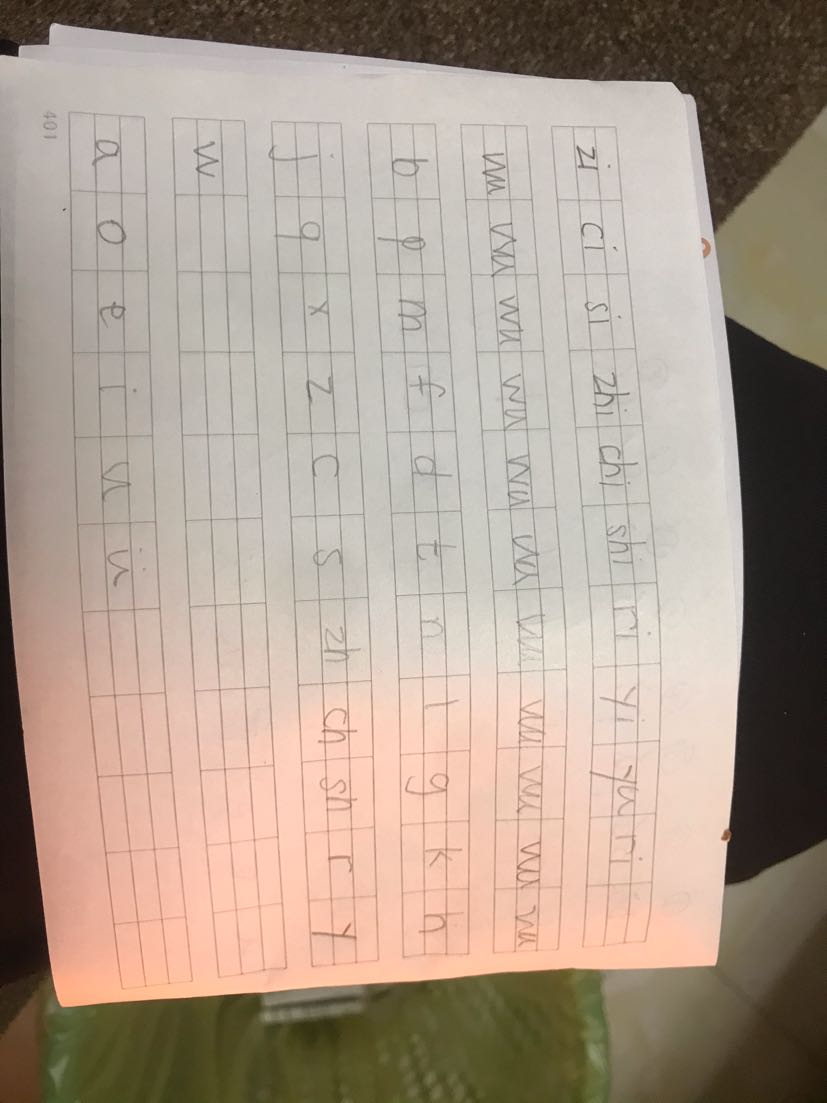 zi ci si zhi chi shi ri yi yu ri
wu wu wu wu wu wu wu wu wu wu wu
b p m f d t n l g k h
j q x z c s zh ch sh r y
w
a o e i u ü
401